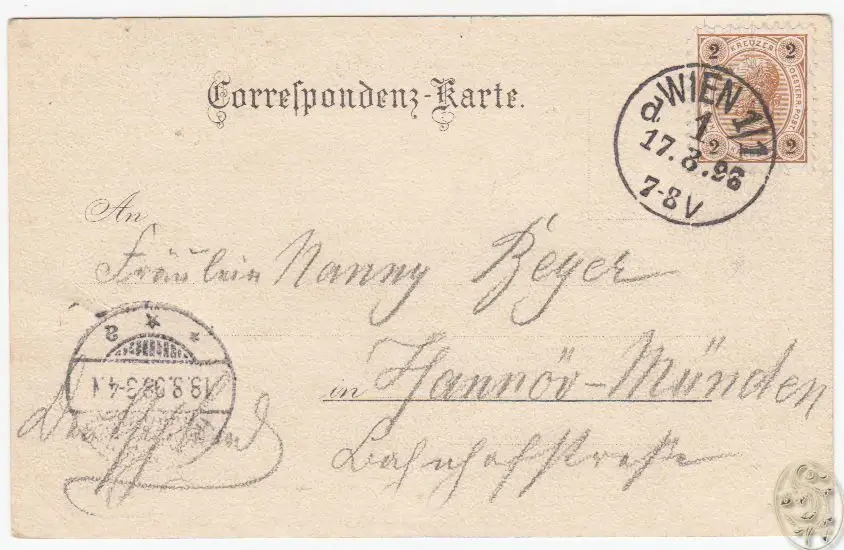 Correspondenz-Karte.
2 KREUZER 2
OESTERR. POST.
2 2
WIEN 1/1
d
1
17.8.98
7-8V
An
Fräulein Nanny Beyer
in Hannöv-Münden
Bahnhofstraße
Deutschland
* * a
18.8.98 3-4.